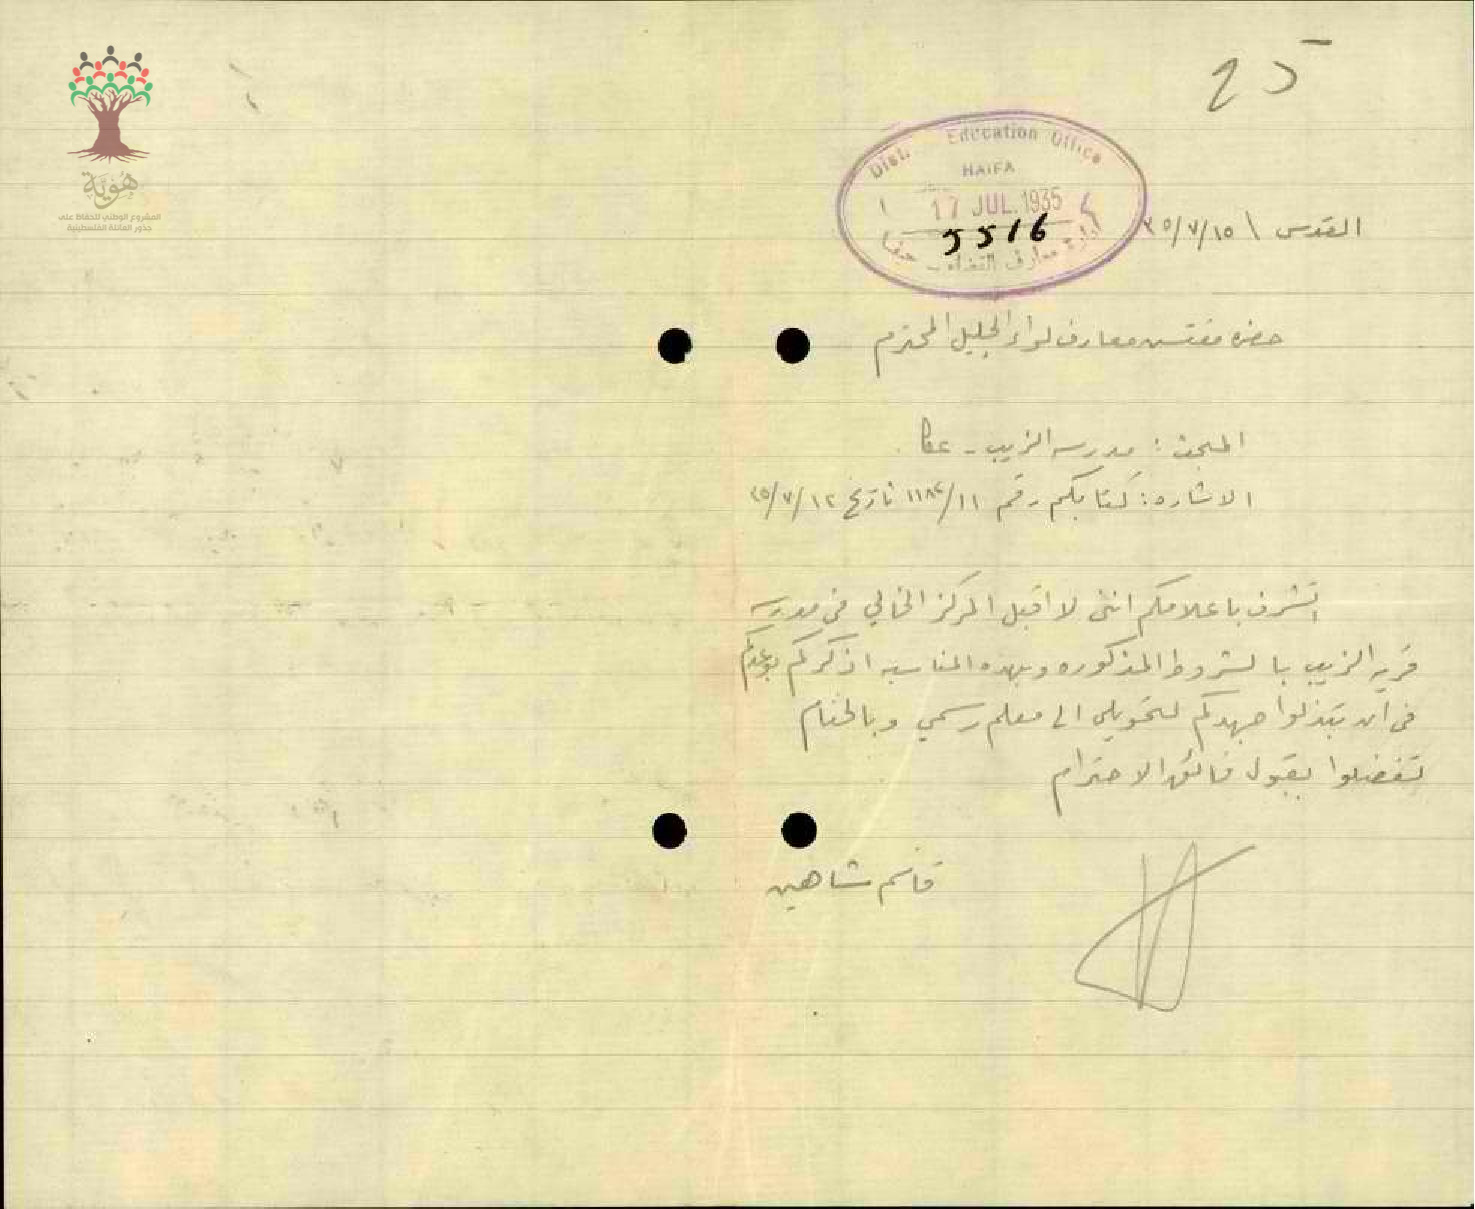 25
Education Office
HAIFA
17 JUL. 1935
5516
ادارة معارف القضاء ـ حيفا
القدس \ ١٥/٧/٣٥
حضرة مفتش معارف لواء الجليل المحترم
المبحث : مدرسة الزيب ـ عكا
الاشاره : كتابكم رقم ١١/١١٨٢ تاريخ ١٢/٧/٣٥
اتشرف باعلامكم انني لا اقبل المركز الخالي في مدرسة
قرية الزيب بالشروط المذكوره وبهذه المناسبه اذكركم بوعدكم
في ان تبذلوا جهدكم لتحويلي الى معلم رسمي وبالختام
تفضلوا بقبول فائق الاحترام
قاسم شاهين
هُوِيَّة
المشروع الوطني للحفاظ على
جذور العائلة الفلسطينية